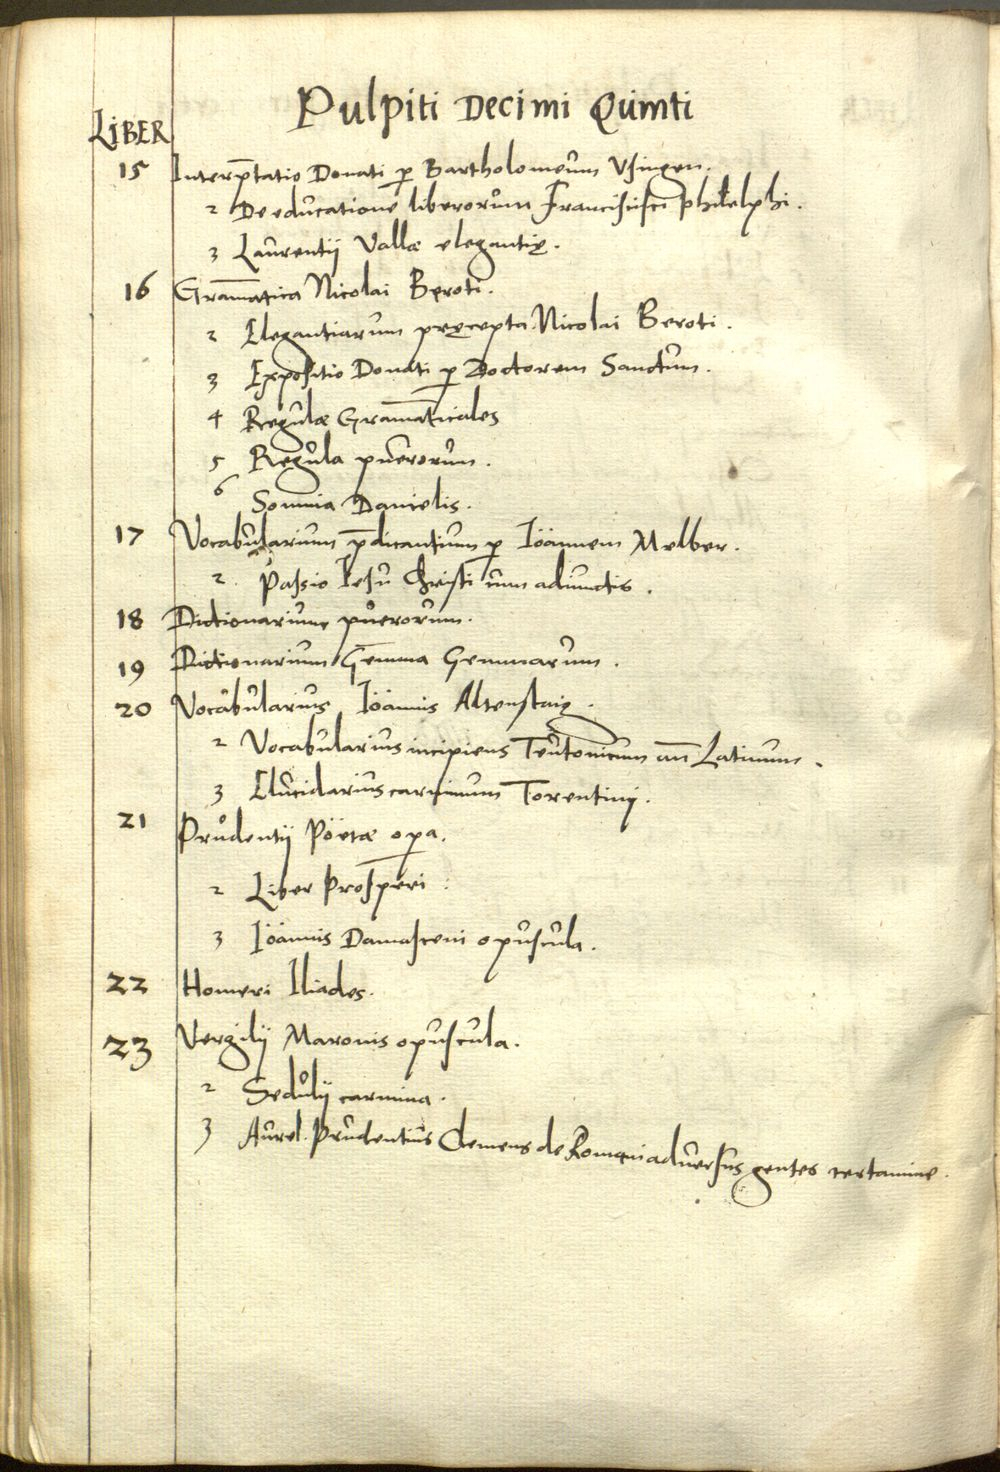 Pulpiti Decimi Quinti
LIBER
15 Interp̄tatio Donati p̱ Bartholomeum Vsingen.
2 De educatione liberorum Francisci Philelphi.
3 Laurentij Vallæ elegantię.
16 Gram̄atica Nicolai Peroti.
2 Elegantiarum pręcepta Nicolai Beroti.
3 Expositio Donati p̱ Doctorem Sanctum.
4 Regulæ Gram̄aticales
5 Regula puerorum.
6 Somnia Danielis.
17 Vocabularium p̄dicantium p̱ Iöannem Melber.
2. Passio Iesu Christi cum adiunctis.
18 Dictionarium puerorum.
19 Dictionarium Gemma Gemmarum.
20 Vocabularius Iöannis Altenstaig.
2 Vocabularius incipiens Teutonicum an̄ Latinum.
3 Elucidarius carminum Torentini.
21 Prudentij Pöetæ op̱a.
2 Liber Prosperi
3 Iöannis Damasceni opuscula.
22 Homeri Iliades.
23 Vergilij Maronis opuscula.
2 Sedulij carmina.
3 Aurel. Prudentius Clemens de Romani aduersus gentes certamine.